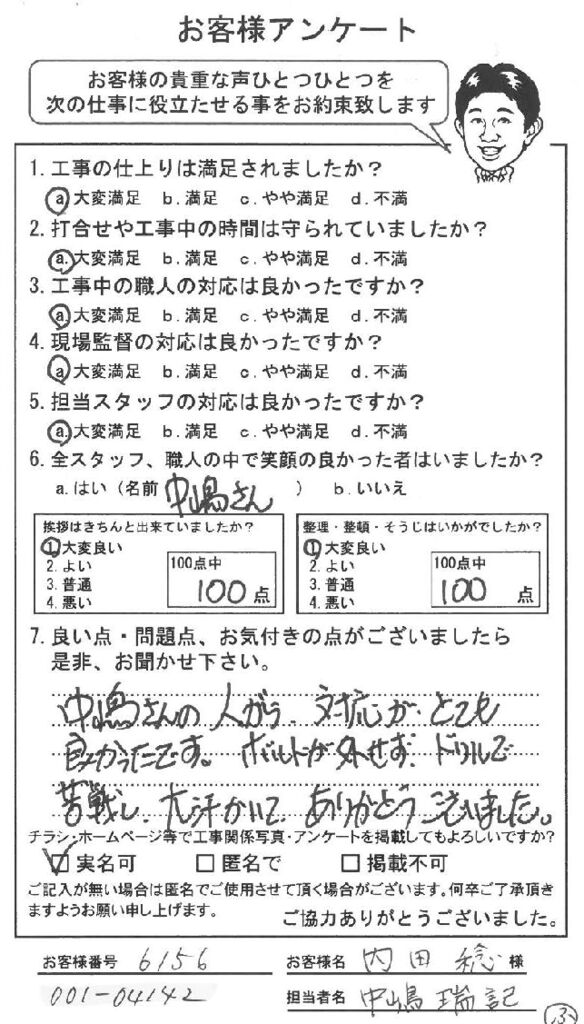 お客様アンケート
お客様の貴重な声ひとつひとつを
次の仕事に役立たせる事をお約束致します
1. 工事の仕上りは満足されましたか？
a 大変満足 b. 満足 c. やや満足 d. 不満
2. 打合せや工事中の時間は守られていましたか？
a. 大変満足 b. 満足 c. やや満足 d. 不満
3. 工事中の職人の対応は良かったですか？
a 大変満足 b. 満足 c. やや満足 d. 不満
4. 現場監督の対応は良かったですか？
a 大変満足 b. 満足 c. やや満足 d. 不満
5. 担当スタッフの対応は良かったですか？
a. 大変満足 b. 満足 c. やや満足 d. 不満
6. 全スタッフ、職人の中で笑顔の良かった者はいましたか？
a. はい（名前 中嶋さん ） b. いいえ
挨拶はきちんと出来ていましたか？
1 大変良い
2. よい
3. 普通
4. 悪い
100点中
100 点
整理・整頓・そうじはいかがでしたか？
1 大変良い
2. よい
3. 普通
4. 悪い
100点中
100 点
7. 良い点・問題点、お気付きの点がございましたら
是非、お聞かせ下さい。
中嶋さんの人がら、対応が とても
良かったです。ボルトが外せず ドリルで
苦戦し、大汗かいて、ありがとうございました。
チラシ・ホームページ等で工事関係写真・アンケートを掲載してもよろしいですか？
☑ 実名可 □ 匿名で □ 掲載不可
ご記入が無い場合は匿名でご使用させて頂く場合がございます。何卒ご了承頂き
ますようお願い申し上げます。
ご協力ありがとうございました。
お客様番号 6156
001-04142
お客様名 内田 稔 様
担当者名 中嶋 瑞記